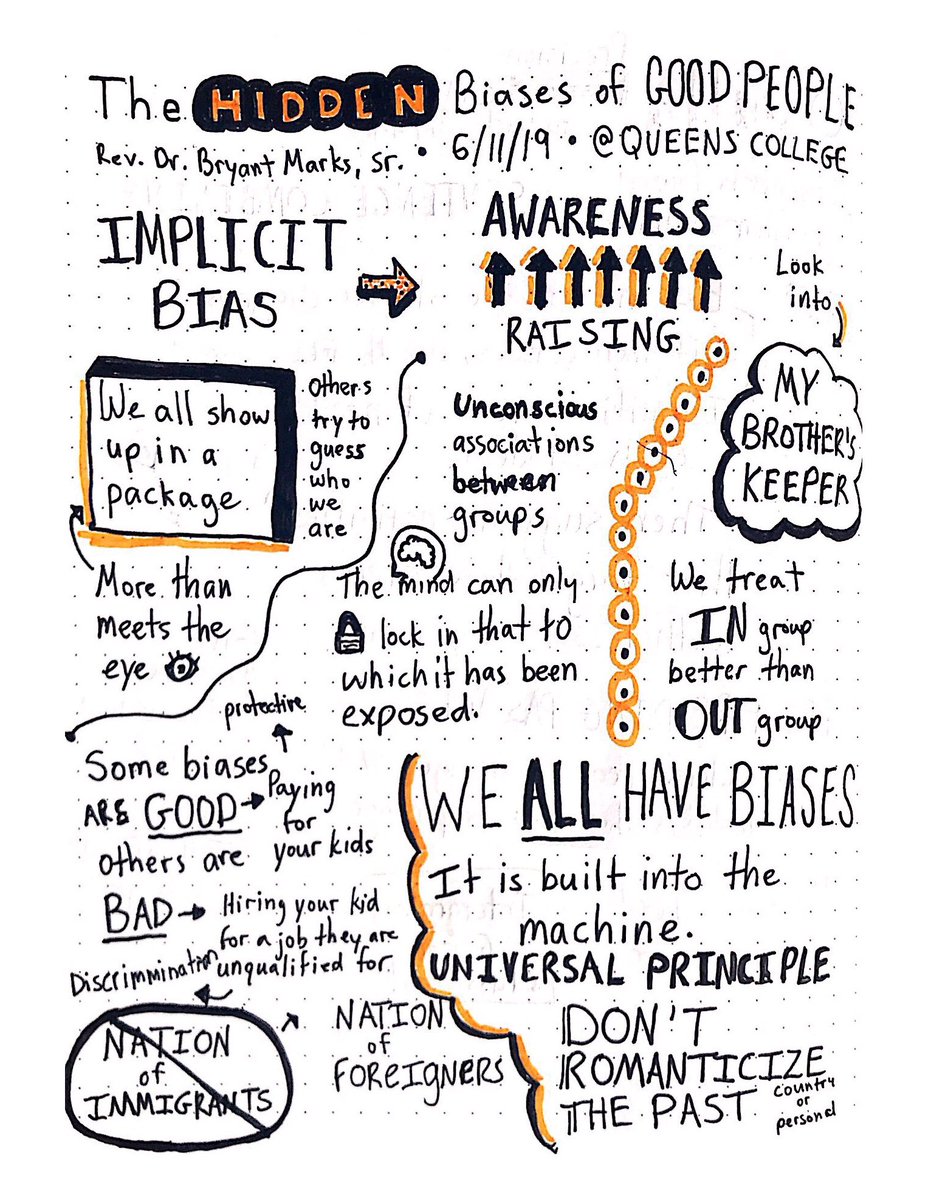 The HIDDEN Biases of GOOD PEOPLE
Rev. Dr. Bryant Marks, Sr. • 6/11/19 • @QUEENS COLLEGE
IMPLICIT
BIAS
AWARENESS
RAISING
Look
into
MY
BROTHER'S
KEEPER
We all show
up in a
package
Others
try to
guess
who
we
are
More than
meets the
eye
Unconscious
associations
between
group's
The mind can only
lock in that to
which it has been
exposed.
We treat
IN group
better than
OUT group
protective
Some biases
ARE GOOD
Paying
for
your kids
others are
BAD
Hiring your kid
for a job they are
unqualified for
Discrimmination
NATION
of
IMMIGRANTS
NATION
of
FOREIGNERS
WE ALL HAVE BIASES
It is built into the
machine.
UNIVERSAL PRINCIPLE
DON'T
ROMANTICIZE
THE PAST
country
or
personal